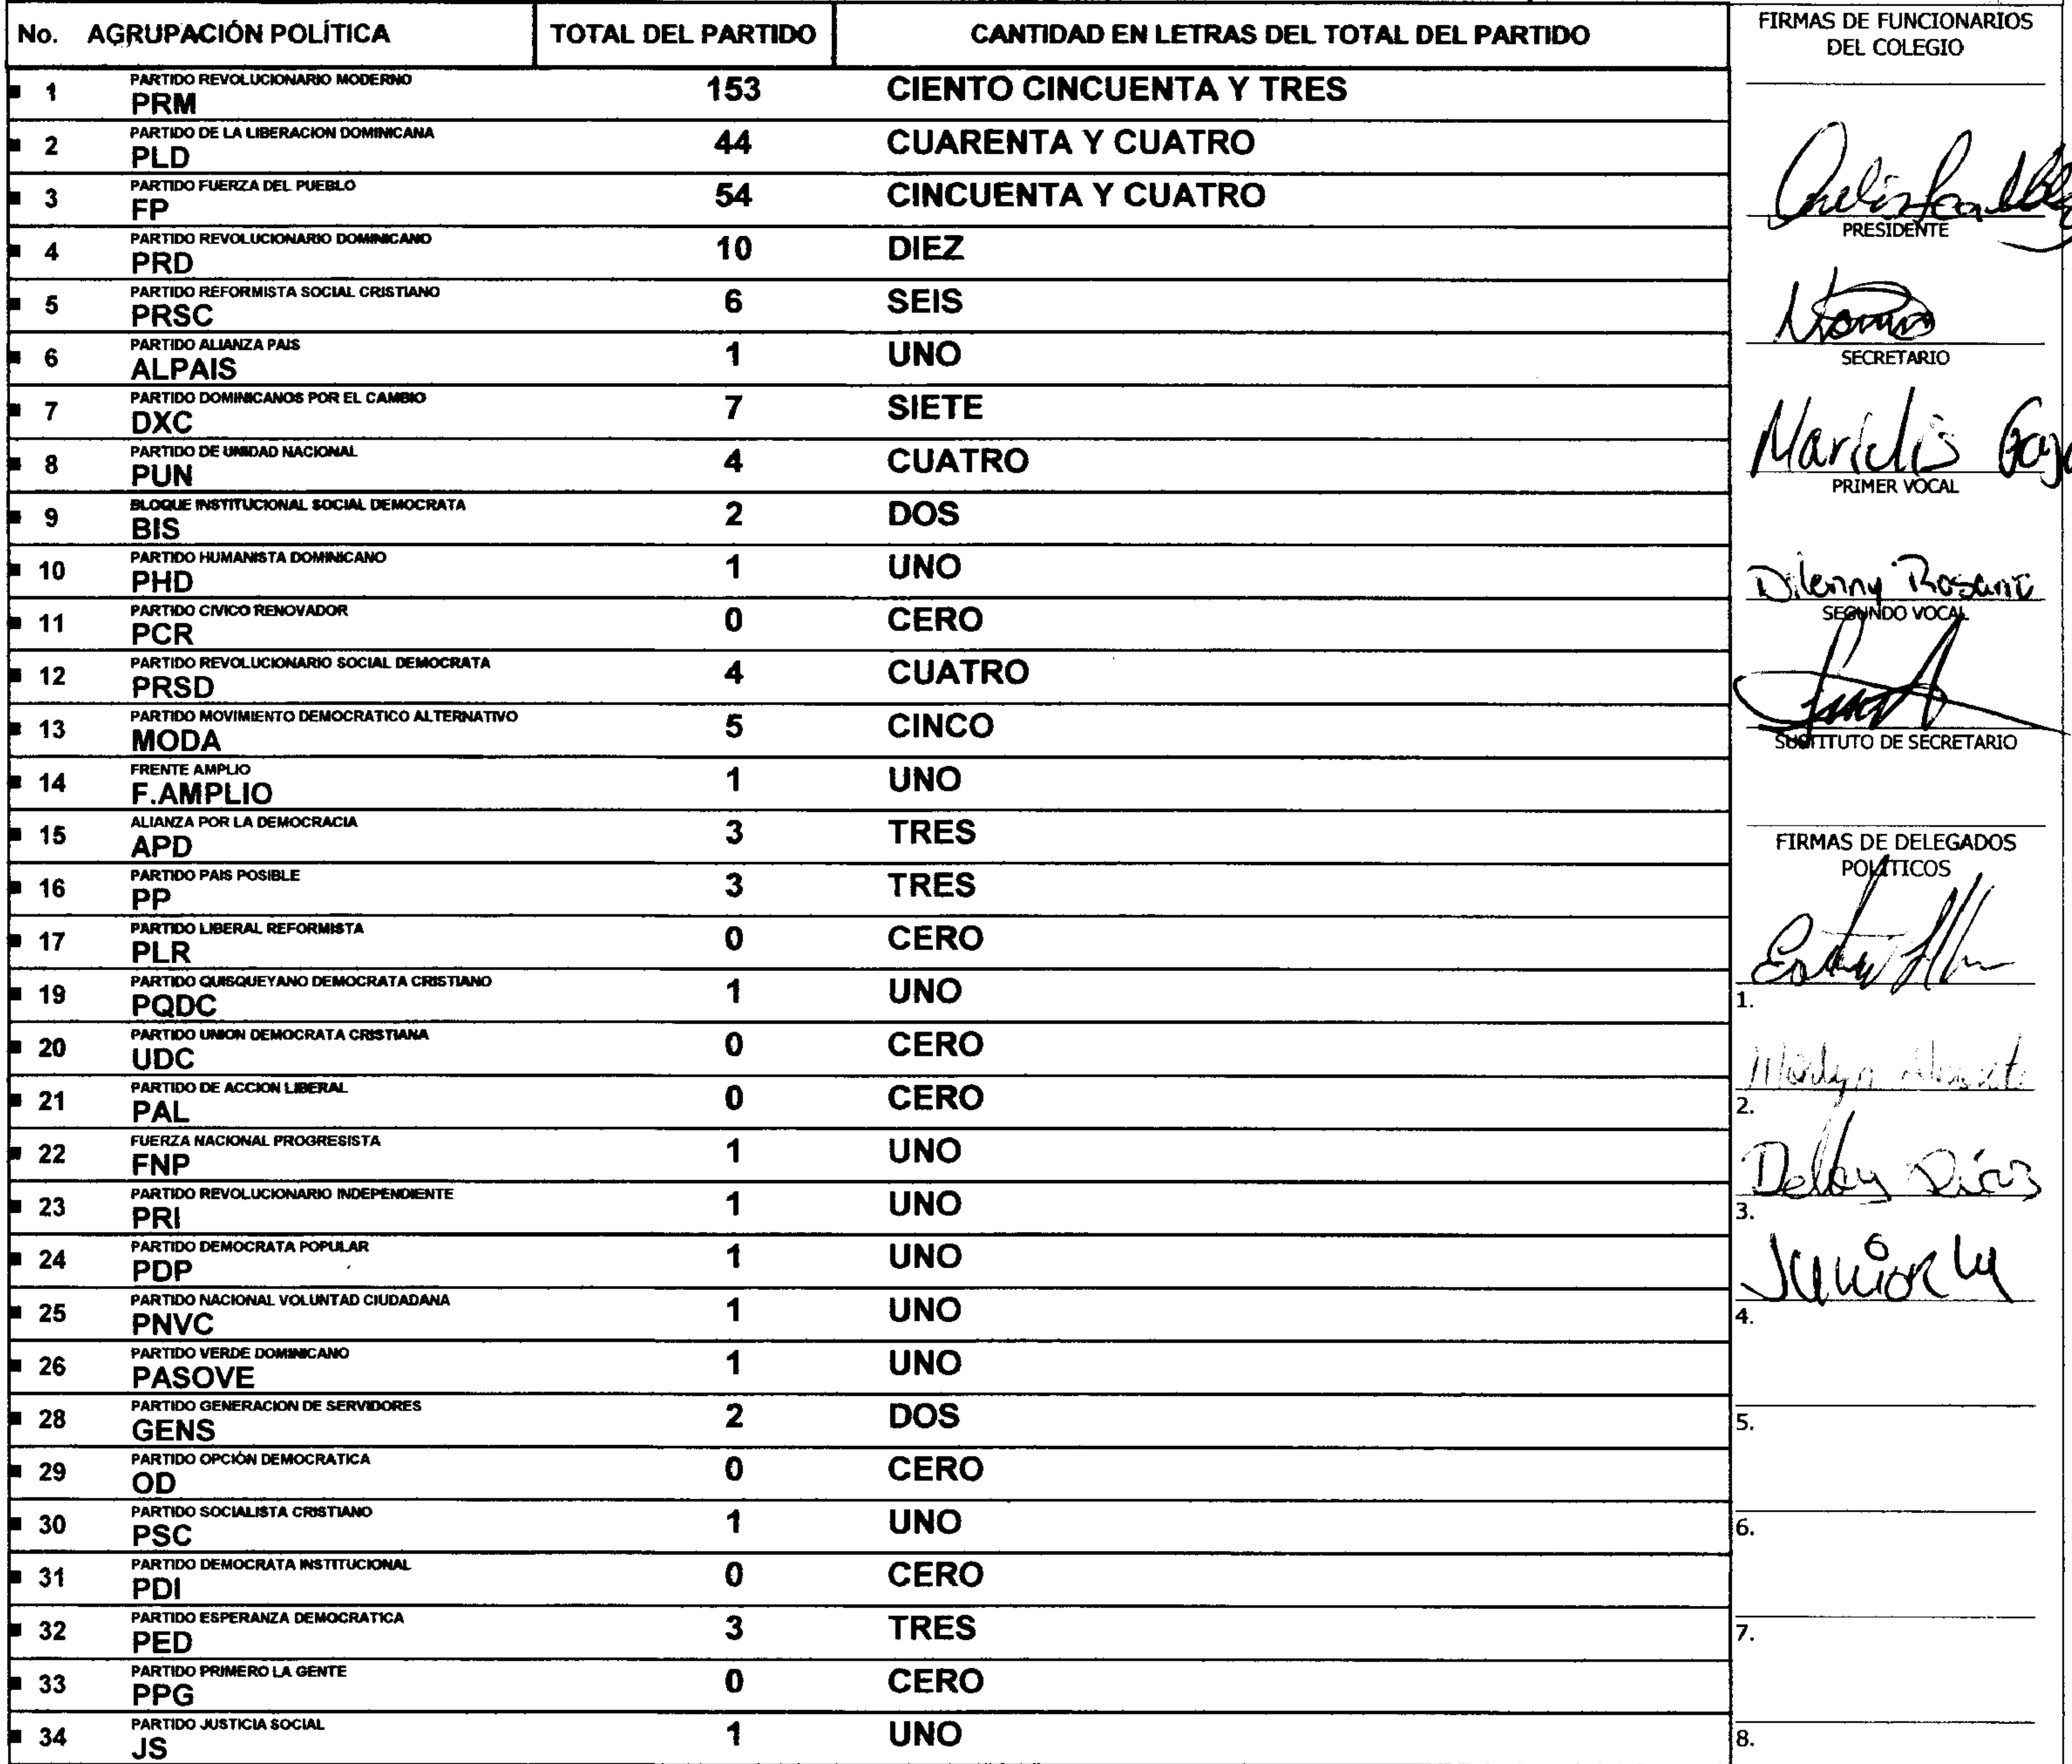 No. AGRUPACIÓN POLÍTICA TOTAL DEL PARTIDO CANTIDAD EN LETRAS DEL TOTAL DEL PARTIDO
PARTIDO REVOLUCIONARIO MODERNO
1 PRM 153 CIENTO CINCUENTA Y TRES
PARTIDO DE LA LIBERACION DOMINICANA
2 PLD 44 CUARENTA Y CUATRO
PARTIDO FUERZA DEL PUEBLO
3 FP 54 CINCUENTA Y CUATRO
PARTIDO REVOLUCIONARIO DOMINICANO
4 PRD 10 DIEZ
PARTIDO REFORMISTA SOCIAL CRISTIANO
5 PRSC 6 SEIS
PARTIDO ALIANZA PAIS
6 ALPAIS 1 UNO
PARTIDO DOMINICANOS POR EL CAMBIO
7 DXC 7 SIETE
PARTIDO DE UNIDAD NACIONAL
8 PUN 4 CUATRO
BLOQUE INSTITUCIONAL SOCIAL DEMOCRATA
9 BIS 2 DOS
PARTIDO HUMANISTA DOMINICANO
10 PHD 1 UNO
PARTIDO CIVICO RENOVADOR
11 PCR 0 CERO
PARTIDO REVOLUCIONARIO SOCIAL DEMOCRATA
12 PRSD 4 CUATRO
PARTIDO MOVIMIENTO DEMOCRATICO ALTERNATIVO
13 MODA 5 CINCO
FRENTE AMPLIO
14 F.AMPLIO 1 UNO
ALIANZA POR LA DEMOCRACIA
15 APD 3 TRES
PARTIDO PAIS POSIBLE
16 PP 3 TRES
PARTIDO LIBERAL REFORMISTA
17 PLR 0 CERO
PARTIDO QUISQUEYANO DEMOCRATA CRISTIANO
19 PQDC 1 UNO
PARTIDO UNION DEMOCRATA CRISTIANA
20 UDC 0 CERO
PARTIDO DE ACCION LIBERAL
21 PAL 0 CERO
FUERZA NACIONAL PROGRESISTA
22 FNP 1 UNO
PARTIDO REVOLUCIONARIO INDEPENDIENTE
23 PRI 1 UNO
PARTIDO DEMOCRATA POPULAR
24 PDP 1 UNO
PARTIDO NACIONAL VOLUNTAD CIUDADANA
25 PNVC 1 UNO
PARTIDO VERDE DOMINICANO
26 PASOVE 1 UNO
PARTIDO GENERACION DE SERVIDORES
28 GENS 2 DOS
PARTIDO OPCIÓN DEMOCRATICA
29 OD 0 CERO
PARTIDO SOCIALISTA CRISTIANO
30 PSC 1 UNO
PARTIDO DEMOCRATA INSTITUCIONAL
31 PDI 0 CERO
PARTIDO ESPERANZA DEMOCRATICA
32 PED 3 TRES
PARTIDO PRIMERO LA GENTE
33 PPG 0 CERO
PARTIDO JUSTICIA SOCIAL
34 JS 1 UNO
FIRMAS DE FUNCIONARIOS
DEL COLEGIO
PRESIDENTE
SECRETARIO
PRIMER VOCAL
Dilenny
SEGUNDO VOCAL
SUSTITUTO DE SECRETARIO
FIRMAS DE DELEGADOS
POLÍTICOS
1.
2.
Díaz
3.
Junior
4.
5.
6.
7.
8.